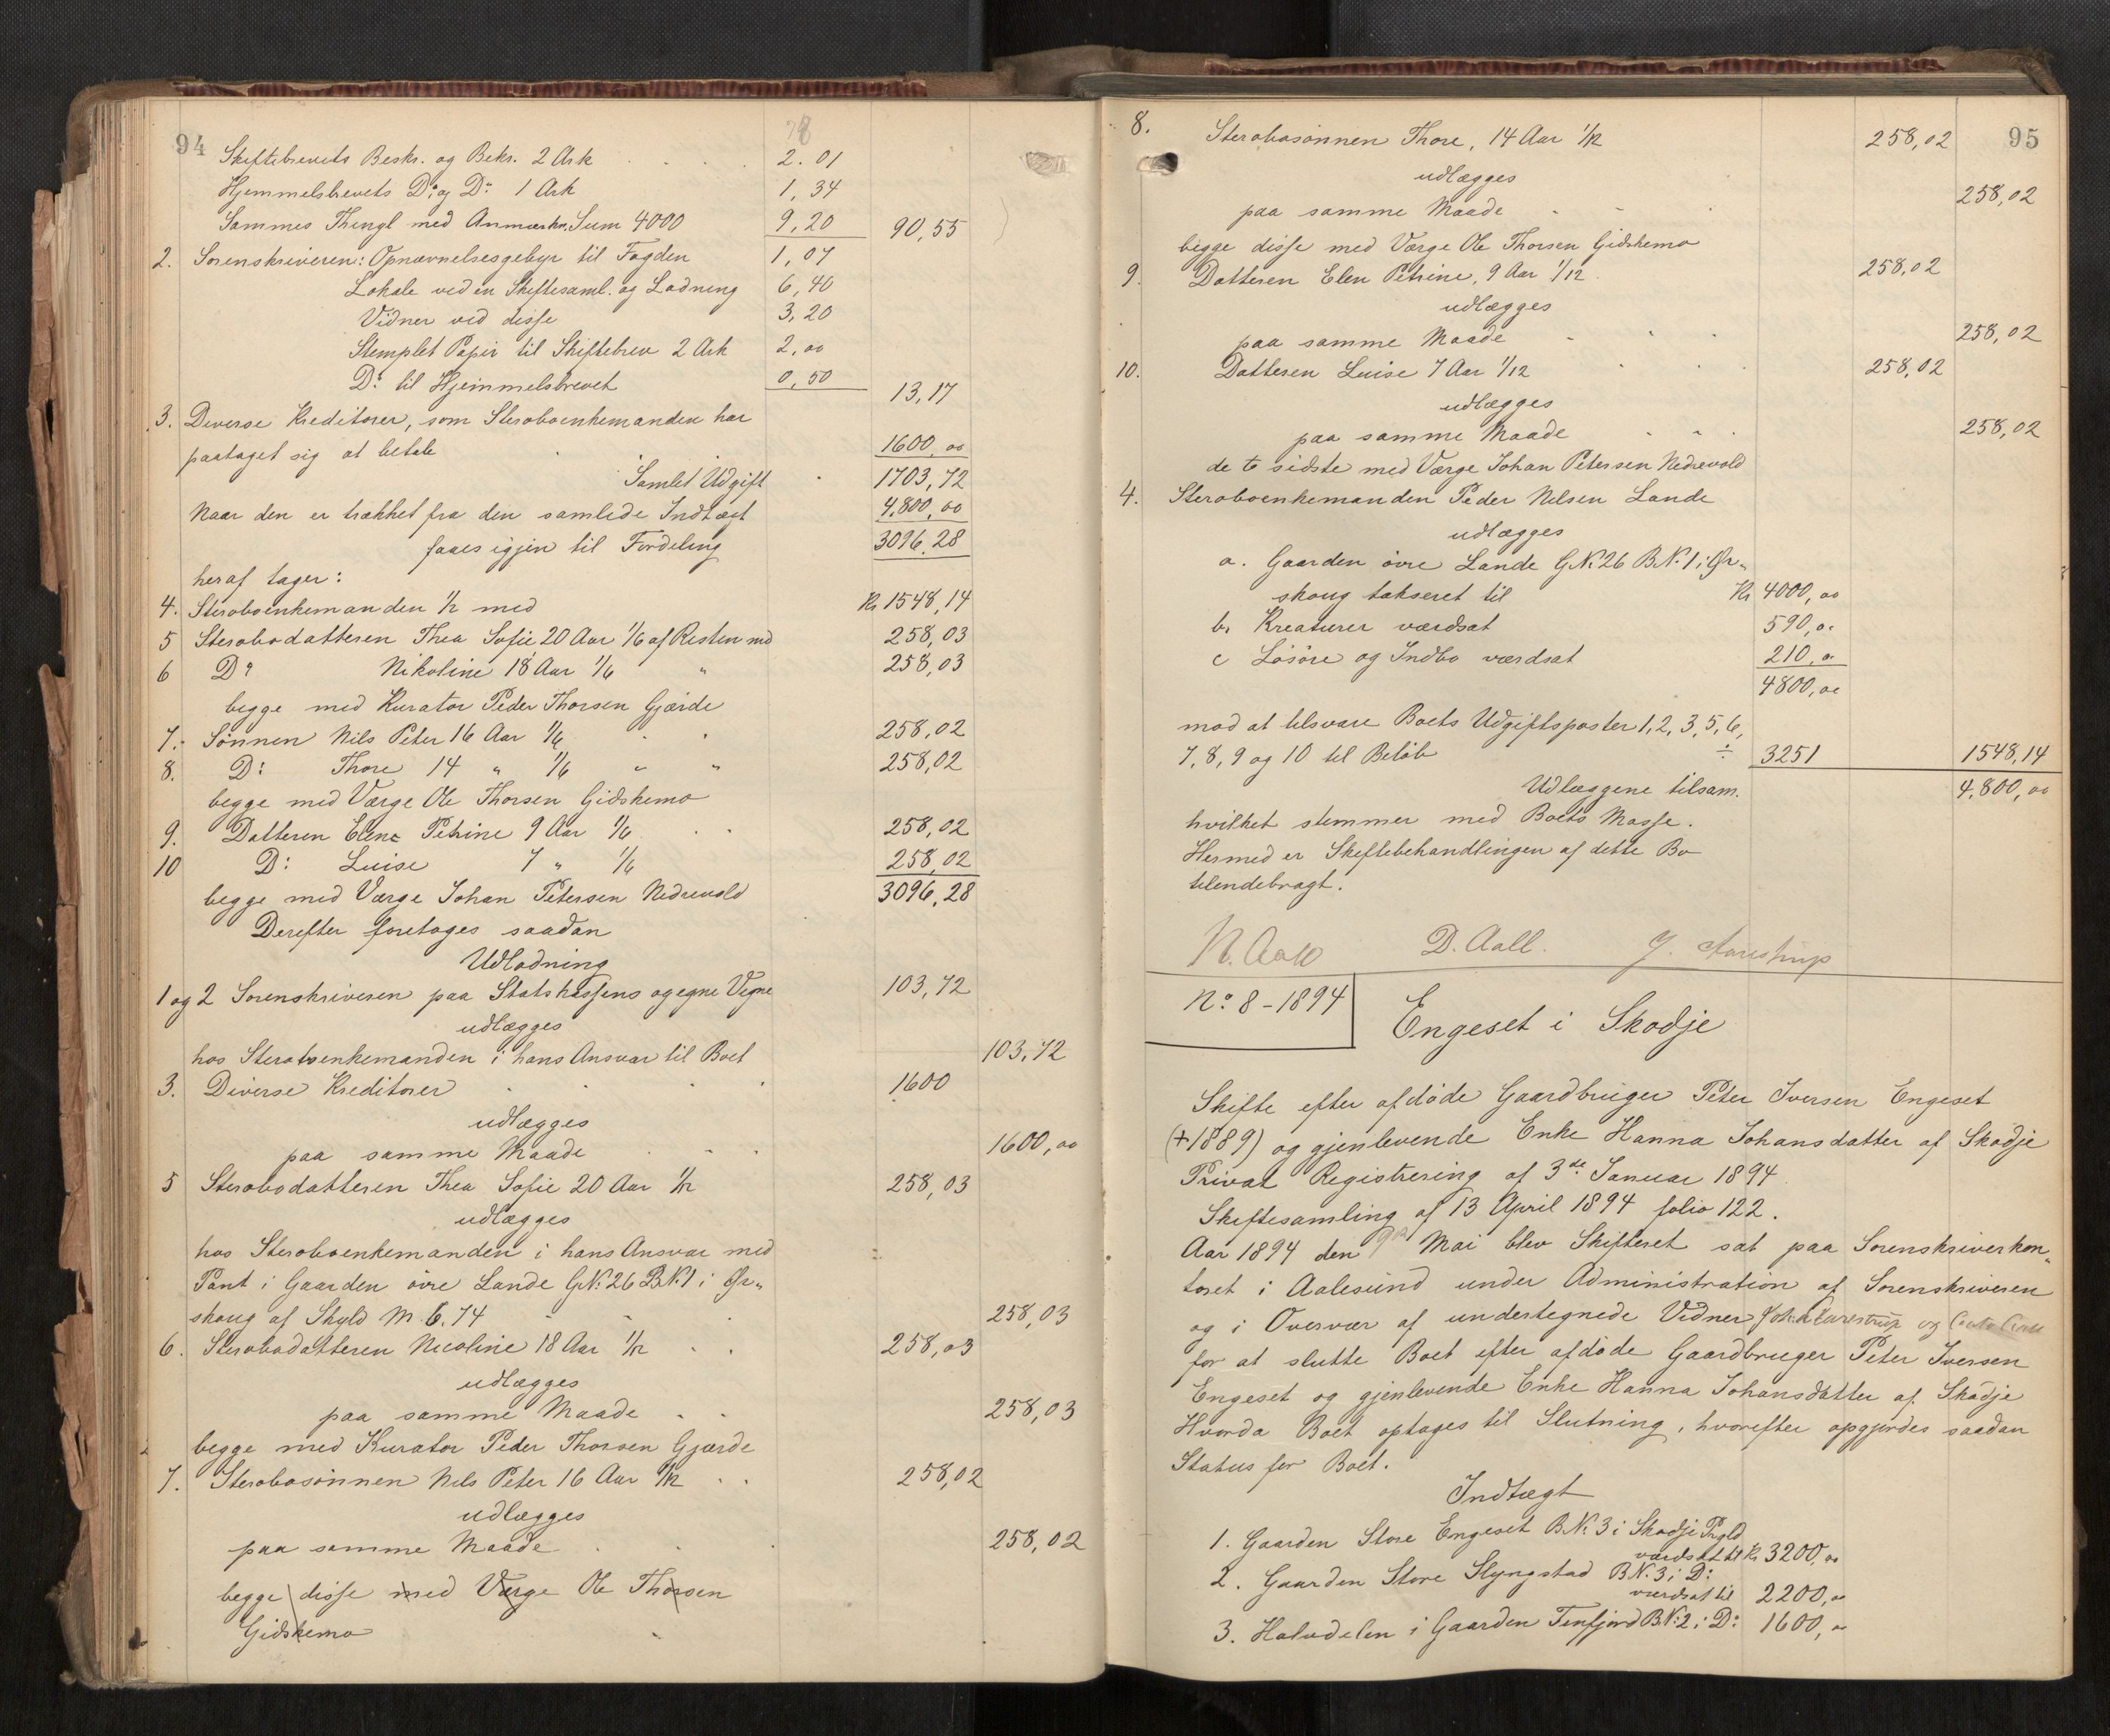 94
Skiftebrevets Beskr. og Bekr. 2 Ark 2.01
Hjemmelsbrevets Do og Do 1 Ark 1,34
Sammes Thingl med Anmærkn. Sum 4000 9,20 90,55
2. Sorenskriveren: Opnævnelsesgebyr til Fogden 1,07
Lokale ved en Skiftesaml. og Lodning 6,40
Vidner ved disse 3,20
Stemplet Papir til Skiftebrev 2 Ark 2,00
Do til Hjemmelsbrevet 0,50 13,17
3. Diverse Kreditorer, som Sterboenkemanden har
paataget sig at betale 1600,00
Samlet Udgift 1703,72
Naar den er trækket fra den samlede Indtægt 4,800,00
faaes igjen til Fordeling 3096,28
heraf tager:
4. Sterboenkemanden 1/2 med Kr 1548,14
5 Sterbodatteren Thea Sofie 20 Aar 1/6 af Resten med 258,03
6 Do Nikoline 18 Aar 1/6 " 258,03
begge med Kurator Peder Thorsen Gjærde
7. Sønnen Nils Peter 16 Aar 1/6 258,02
8. Do Thore 14 " 1/6 " " 258,02
begge med Værge Ole Thorsen Gidskemo
9. Datteren Elene Petrine 9 Aar 1/6 258,02
10 Do Luise 7 " 1/6 258,02
begge med Værge Johan Petersen Nedrevold 3096,28
Derefter foretages saadan
Udlodning
1 og 2 Sorenskriveren paa Statskassens og egne Vegne 103,72
udlægges
hos Sterboenkemanden i hans Ansvar til Boet 103,72
3. Diverse Kreditorer 1600
udlægges
paa samme Maade 1600,00
5 Sterbodatteren Thea Sofie 20 Aar 1/12 258,03
udlægges
hos Sterboenkemanden i hans Ansvar med
Pant i Gaarden øvre Lande GN: 26 BN: 1 i Ør„
skoug af Skyld M 6.74 258,03
6. Sterbodatteren Nicoline 18 Aar 1/12 258,03
udlægges
paa samme Maade 258,03
begge med Kurator Peder Thorsen Gjærde
7. Sterbosønnen Nils Peter 16 Aar 1/12 258,02
udlægges
paa samme Maade 258,02
begge disse med Værge Ole Thorsen
Gidskemo
95
8. Sterbosønnen Thore, 14 Aar 1/12 258,02
udlægges
paa samme Maade 258,02
begge disse med Værge Ole Thorsen Gidskemo
9. Datteren Elen Petrine, 9 Aar 1/12 258,02
udlægges
paa samme Maade 258,02
10. Datteren Luise 7 Aar 1/12 258,02
udlægges
paa samme Maade 258,02
de to sidste med Værge Johan Petersen Nedrevold
4. Sterboenkemanden Peder Nilsen Lande
udlægges
a. Gaarden øvre Lande GN: 26 BN: 1 i Ør„
skoug takseret til Kr 4000,00
b. Kreaturer værdsat 590,00
c Løsøre og Indbo værdsat 210,00
4800,00
mod at tilsvare Boets Udgiftsposter 1, 2, 3, 5, 6,
7, 8, 9 og 10 til Beløb ÷ 3251 1548,14
Udlæggene tilsam. 4,800,00
hvilket stemmer med Boets Masse.
Hermed er Skiftebehandlingen af dette Bo
tilendebragt.
N. Aall D. Aall. J. Aarestrup
No 8 - 1894
Engeset i Skodje
Skifte efter afdøde Gaardbruger Peter Iversen Engeset
(+1889) og gjenlevende Enke Hanna Johansdatter af Skodje
Privat Registrering af 3de Januar 1894
Skiftesamling af 13 April 1894 folio 122.
Aar 1894 den 9de Mai blev Skifteret sat paa Sorenskriverkon„
toret i Aalesund under Administration af Sorenskriveren
og i Overvær af undertegnede Vidner Joh. Aarestrup og
for at slutte Boet efter afdøde Gaardbruger Peter Iversen
Engeset og gjenlevende Enke Hanna Johansdatter af Skodje
Hvorda Boet optages til Slutning, hvorefter opgjordes saadan
Status for Boet.
Indtægt
1. Gaarden Store Engeset BN: 3 i Skodje Prgld
værdsat til Kr 3200,00
2. Gaarden Store Slyngstad BN: 3 i Do
værdsat til 2200,00
3. Halvdelen i Gaarden Tenfjord BN: 2 i Do 1600,00